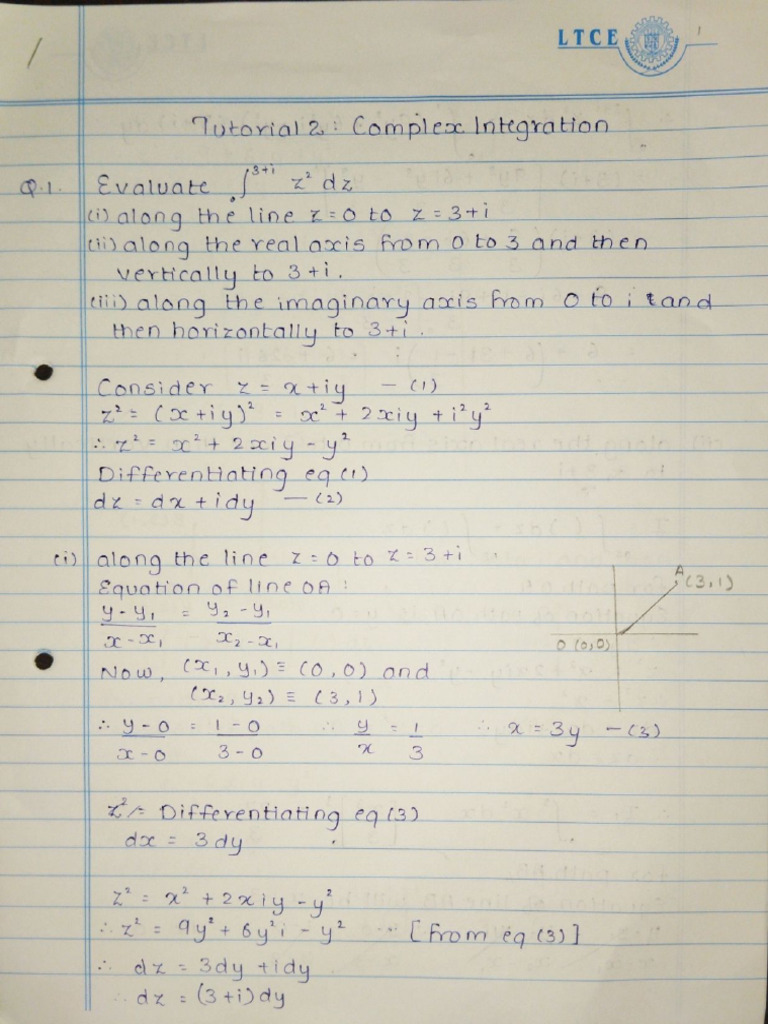 LTCE
1
Tutorial 2 : Complex Integration
Q.1. Evaluate ∫³⁺ⁱ₀ z² dz
(i) along the line z = 0 to z = 3+i
(ii) along the real axis from 0 to 3 and then
vertically to 3+i.
(iii) along the imaginary axis from 0 to i and
then horizontally to 3+i.
Consider z = x+iy — (1)
z² = (x+iy)² = x² + 2xiy + i²y²
∴ z² = x² + 2xiy - y²
Differentiating eq (1)
dz = dx + idy — (2)
(i) along the line z = 0 to z = 3+i
Equation of line OA :
A (3,1)
O (0,0)
(y-y₁)/(x-x₁) = (y₂-y₁)/(x₂-x₁)
Now, (x₁,y₁) ≡ (0,0) and
(x₂,y₂) ≡ (3,1)
∴ (y-0)/(x-0) = (1-0)/(3-0) ∴ y/x = 1/3 ∴ x = 3y — (3)
z² = Differentiating eq (3)
dx = 3dy
z² = x² + 2xiy - y²
∴ z² = 9y² + 6y²i - y² ... [from eq (3)]
∴ dz = 3dy + idy
∴ dz = (3+i)dy